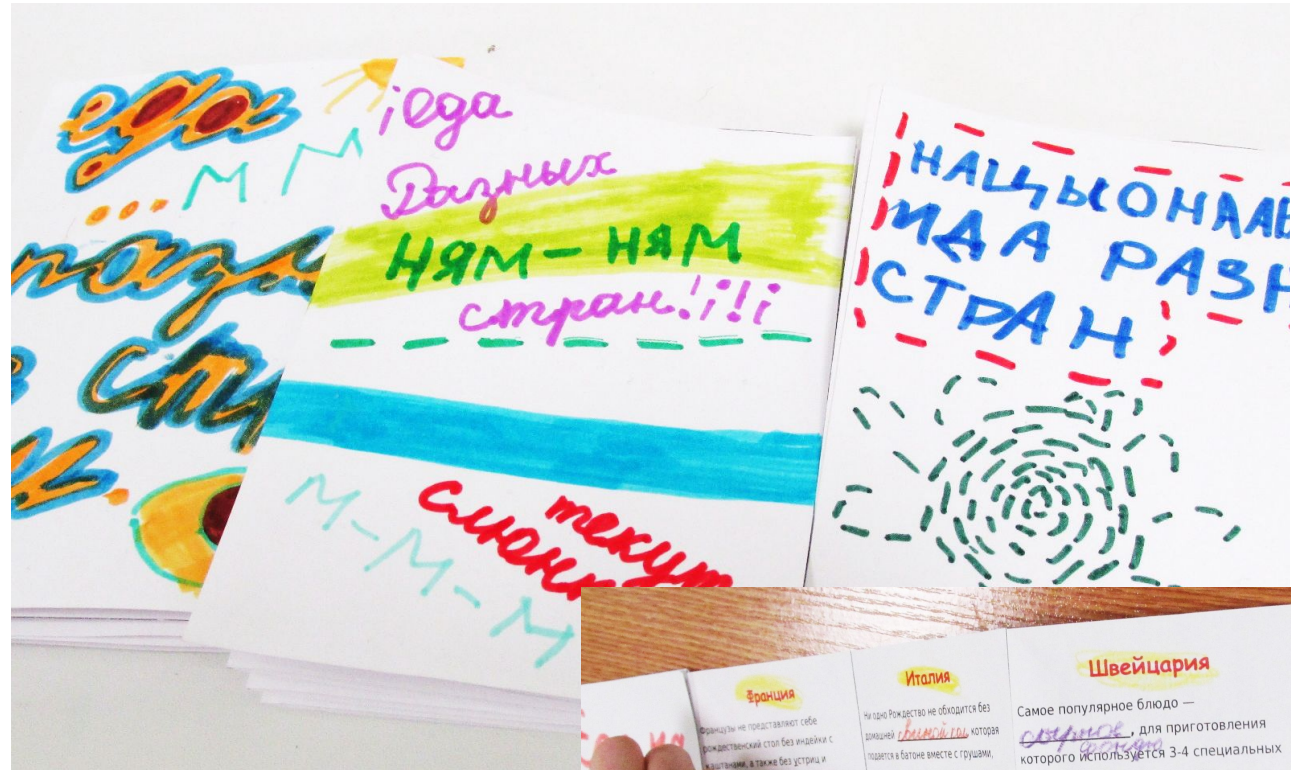 еда
... м м
разн
стр
¡еда
Разных
НЯМ-НЯМ
стран!¡!¡
текут
слюнк
М-М-М
НАЦЫОНАЛЬ
ИДА РАЗН
СТРАН
Франция
Французы не представляют себе
рождественский стол без индейки с
каштанами, а также без устриц и
Италия
Ни одно Рождество не обходится без
домашней которая
подается в батоне вместе с грушами,
Швейцария
Самое популярное блюдо —
сырное фондю, для приготовления
которого используется 3-4 специальных